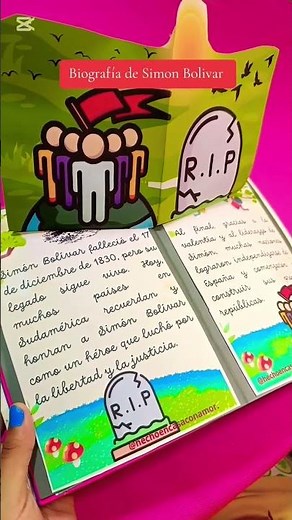 Biografía de Simon Bolivar
R.I.P
Simón Bolívar falleció el 17
de diciembre de 1830, pero su
legado sigue vivo. Hoy,
muchos países en
Sudamérica recuerdan y
honran a Simón Bolívar
como un héroe que luchó por
la libertad y la justicia.
R.I.P
@hechoencasaconamor.
Al final gracias a
valentía y al liderazgo de
Simón muchas
lograron
España y comenzar
construir sus
repúblicas.
@hechoencas